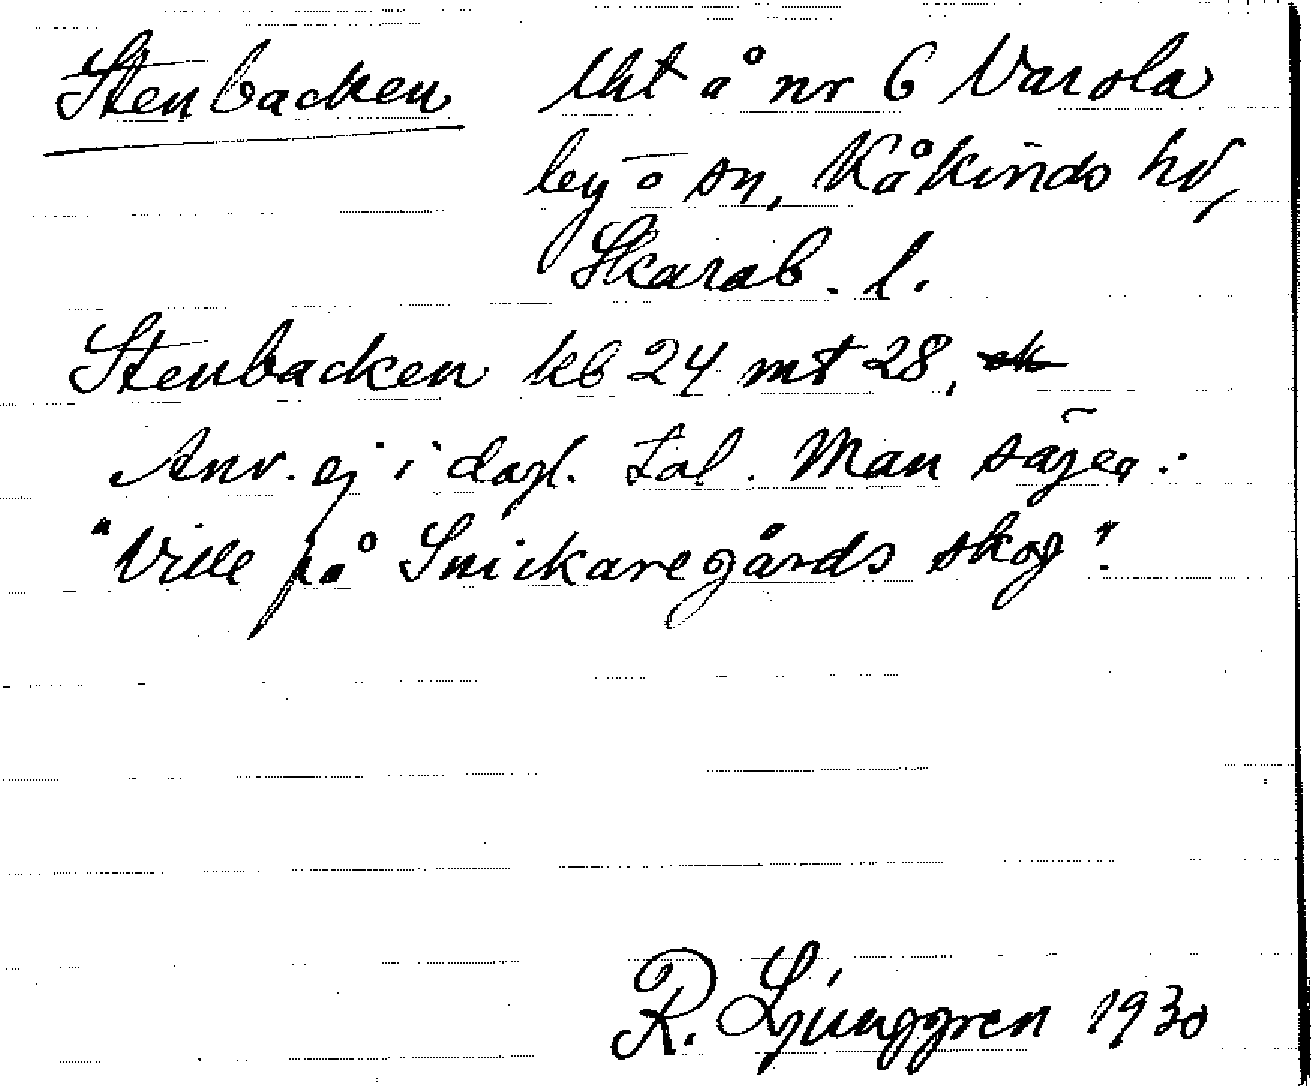 Stenbacken lht å nr 6 Varola
by o sn, Kåkinds hd,
Skarab. l.
Stenbacken kb 24 mt 28,
Anv. ej i dagl. tal. Man säger:
"Ville på Snickaregårds skog".
R. Ljunggren 1930